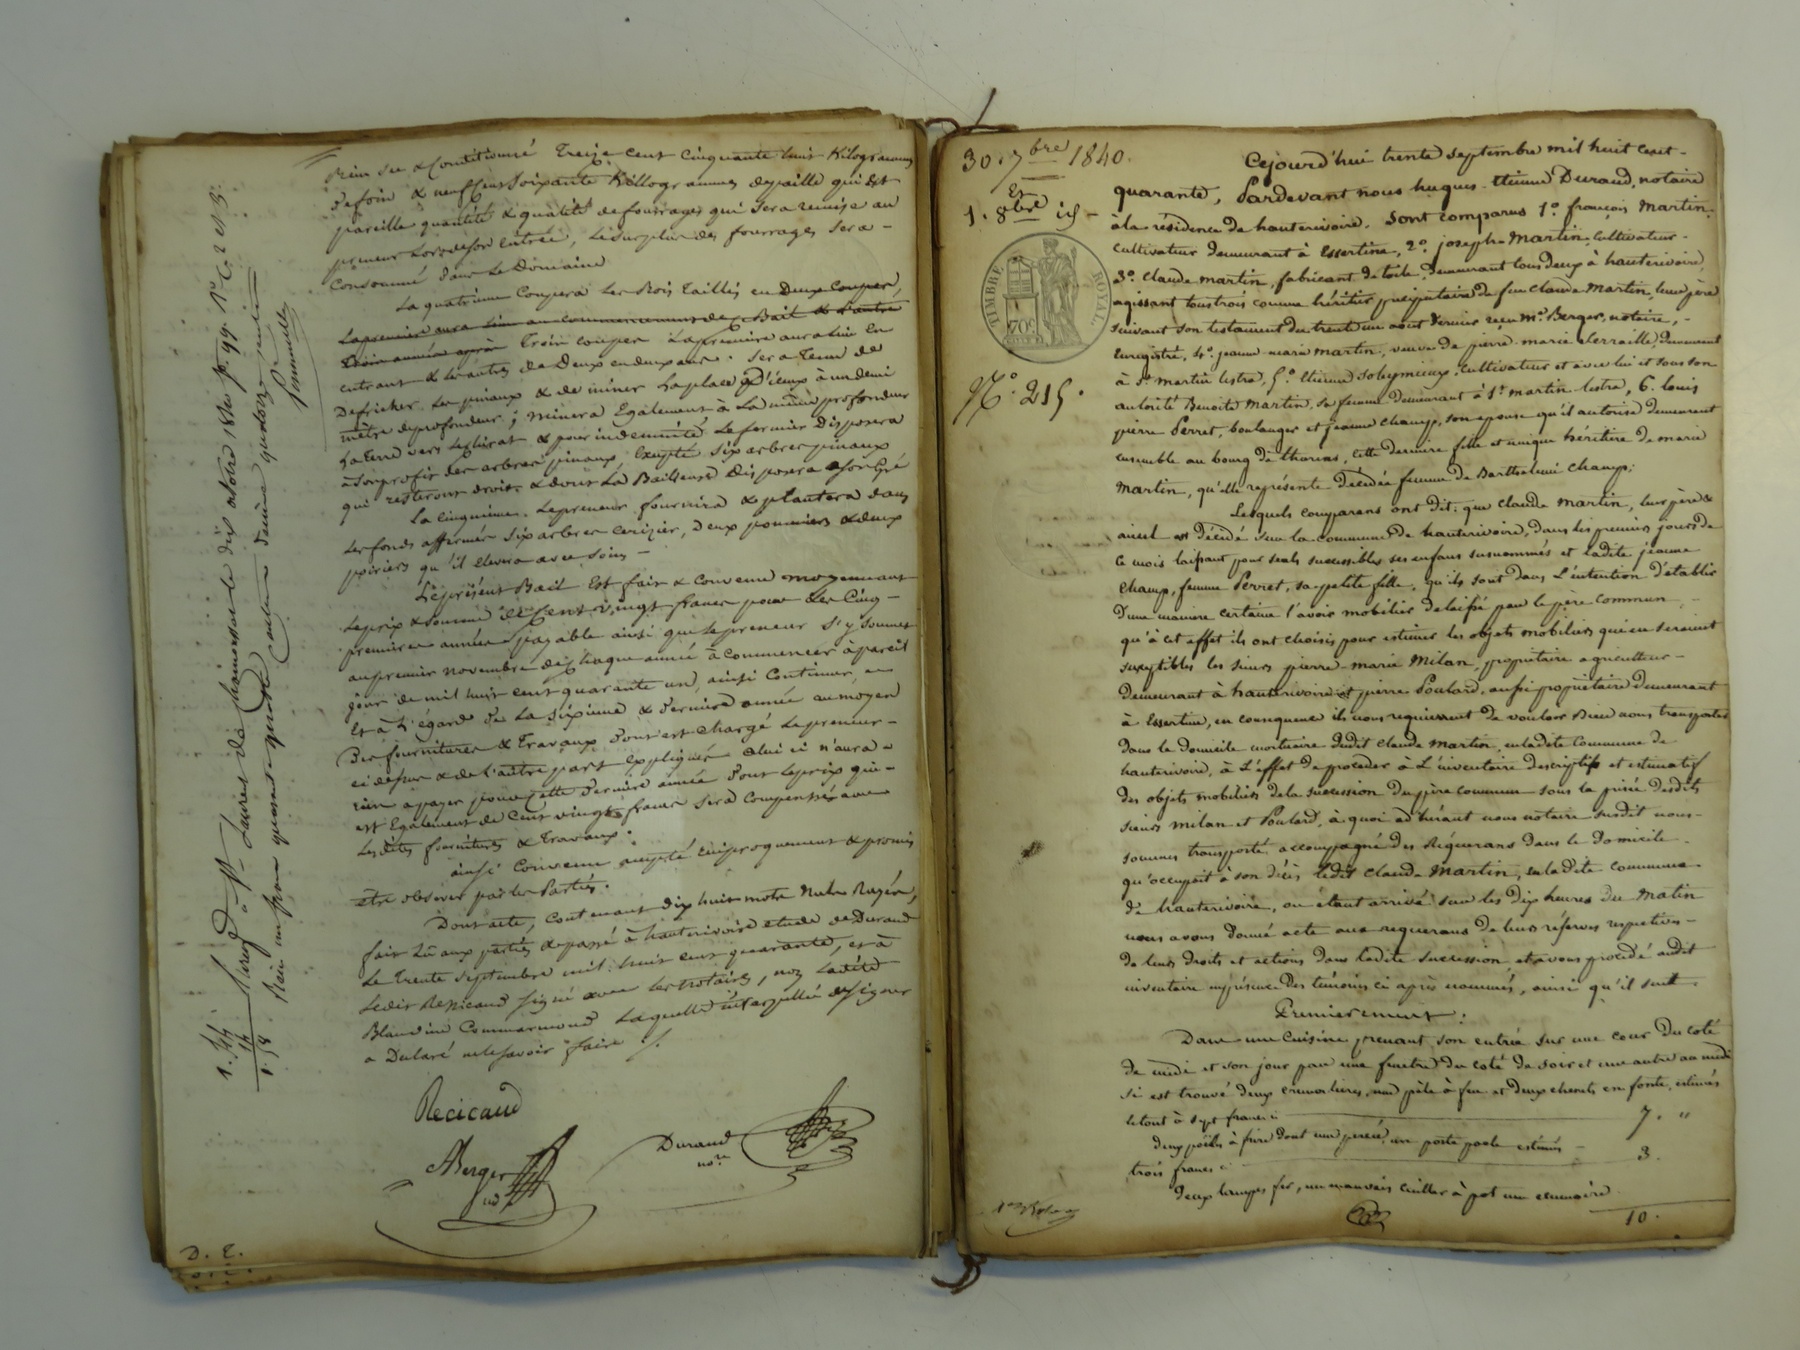 bien sec & conditionné Treize cent cinquante huit Kilogrammes
de foin & neuf cent Soixante Killogrammes de paille qui est
pareille quantité & qualité de fourrages qui sera remise au
preneur Lors de son entrée, Le surplus des fourrages sera -
Consommé dans Le Domaine
La quatrieme Coupera Les Bois Taillis en Deux Coupes,
La premiere aura lieu au Commencement de Bail & L'autre
Trois années après Trois coupes La premiere aura lieu En
entrant & les autres de Deux en deux ans. Sera Tenu de
Defricher Les pinaux & de miner La place d'iceux à un demi
mètre de profondeur; minera Egalement à La même profondeur
La terre vers & pour indemnité Le fermier Disposera
à son profit des arbres pinaux Excepté Six arbres pinaux
qui resteront droits & dont La Bailleuse Disposera a son gré
La Cinquieme. Le preneur fournira & plantera dans
Les fonds affermés Six arbres cerizier, Deux pommiers & deux
poiriers qu'il élevera avec soins -
Le présent Bail Est fait & Convenu moyennant
Le prix & somme de Cent vingt francs pour Les Cinq -
premieres années payable ainsi que Le preneur s'y soumet
au premier novembre de Chaque année à commencer à pareil
jour de mil huit cent quarante un, ainsi Continuer, -
Et à L'égard de La Sixieme & Derniere année au moyen
Des fournitures & Travaux Dont est chargé Le preneur -
ci dessus & de l'autre part Expliqués Celui ci n'aura -
rien a payer pour Cette Derniere année Dont Le prix qui -
est Egalement de Cent vingt francs Sera Compensé avec
Lesdites fournitures & Travaux.
ainsi Convenu accepté réciproquement & promis
être observer par les Parties.
Dont acte, Contenant Dix huit mots Nuls Rayés,
fait Lû aux parties & passé à hauterivoire étude de Durand
Le Trente Septembre mil huit cent quarante, et à
Ledit Recicaud Signé avec Les notaires, non Ladite
Blandine Commarmond Laquelle interpellée de Signer
a Déclaré ne Le Savoir faire
Recicaud
ABerger
Durand
nore
D. E.
30. 7bre 1840.
Et
1. 8bre id -
TIMBRE ROYAL
70c
No. 215.
Cejourd'hui trente septembre mil huit cent -
quarante, Pardevant nous hugues-Etienne Durand, notaire
à la résidence de hauterivoire. Sont comparus 1o. françois Martin,
cultivateur demeurant à Essertine, 2o. joseph Martin, cultivateur -
3o. Claude Martin, fabricant de toile, Demeurant tous deux à hauterivoire,
agissant tous trois comme héritiers préciputaire de feu Claude Martin, leur père
suivant son testament du trente un aout dernier reçu Me. Berger, notaire, -
Enregistré, 4o. jeanne-marie Martin, veuve de pierre-marie Serraille, Demeurant
à St. Martin lestra, 5o. Etienne Soleymieux, cultivateur et avec lui et sous son
autorité Benoite Martin, sa femme Demeurant à St. martin-lestra, 6. louis
pierre Perret, boulanger et jeanne Champ, son épouse qu'il autorise demeurant
ensemble au bourg de , Cette derniere fille et unique héritiere de marie
Martin, qu'elle représente Décédée femme de Barthelemi Champ;
Lesquels comparans ont dit: que Claude Martin, leur père &
aieul est décédé sur la commune de hauterivoire, dans les premiers jours de
ce mois laissant pour seuls successibles ses enfans susnommés et ladite jeanne
Champ, femme Perret, sa petite fille, qu'ils sont dans L'intention d'établir
D'une maniere certaine l'avoir mobilier délaissé par le père commun -
qu'à cet effet ils ont choisis pour estimer les objets mobiliers qui en seraient
susceptibles les sieurs pierre-marie Milan, propriétaire agriculteur -
demeurant à hauterivoire et pierre Poulard, aussi propriétaire Demeurant
à Essertine, en consequence ils nous requierent de vouloir Bien nous transporter
dans le domicile mortuaire dudit Claude Martin, en ladite Commune de
hauterivoire, à L'effet de proceder à L'inventaire descriptif et estimatif
des objets mobiliers de la succession du père commun sous la prisée desdits
sieurs Milan et Poulard, à quoi adhérant nous notaire susdit nous -
sommes transporté accompagné des Réquerans dans le Domicile -
qu'occupait à son décès ledit Claude Martin, en ladite commune
de hauterivoire, ou étant arrivé sur les dix heures du Matin
nous avons donné acte aux requerans de leurs réserves respectives -
de leurs droits et actions dans ladite succession, et avons procédé audit
inventaire en présence Des témoins ci après nommés, ainsi qu'il suit.
Premierement:
Dans une Cuisine prenant son entrée sur une cour du coté
de midi et son jour par une fenetre du coté de soir et une autre au midi
si est trouvé deux cremailleres, une pèle à feu et deux chenets en fonte, estimés
le tout à sept francs ci 7. "
Deux poëlles à frire dont une percée un porte poele estimés -
trois francs ci 3.
Deux lampes fer, un mauvais cuiller à pot une ecumoire
10.